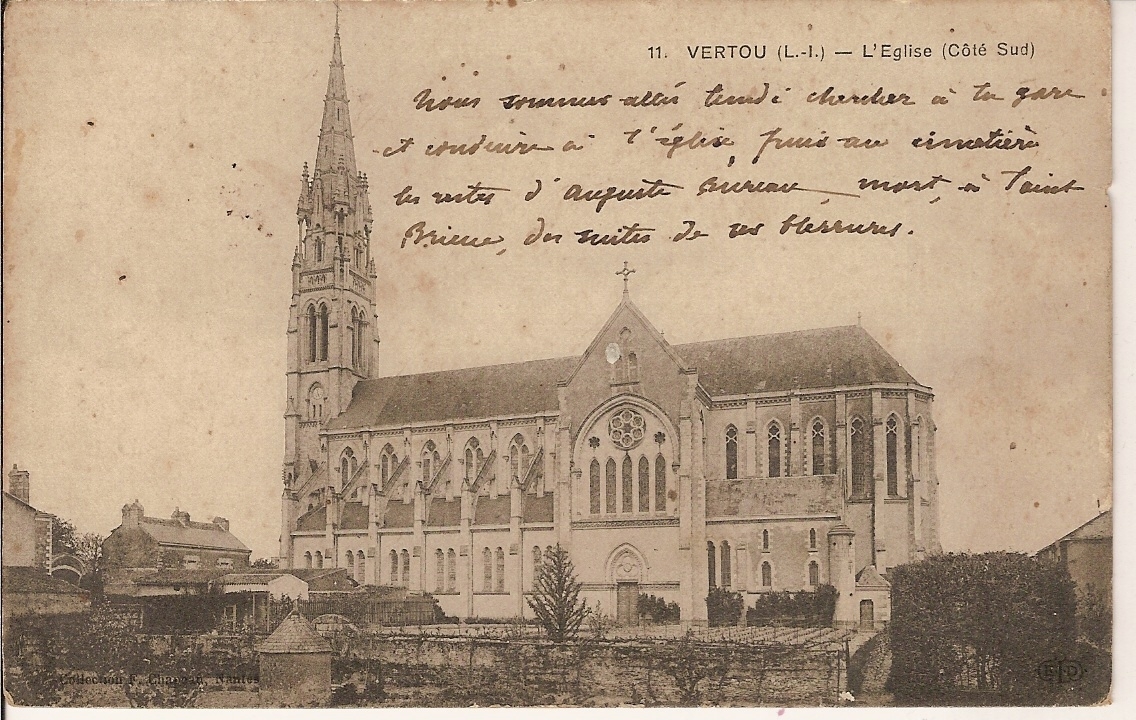 11. VERTOU (L.-I.) — L'Eglise (Côté Sud)
Nous sommes allés lundi chercher à la gare
et conduire à l'église puis au cimetière
les restes d'Auguste Bureau, mort, à Saint
Brieuc, des suites de ses blessures.
Collection F. Chapeau, Nantes
ELD